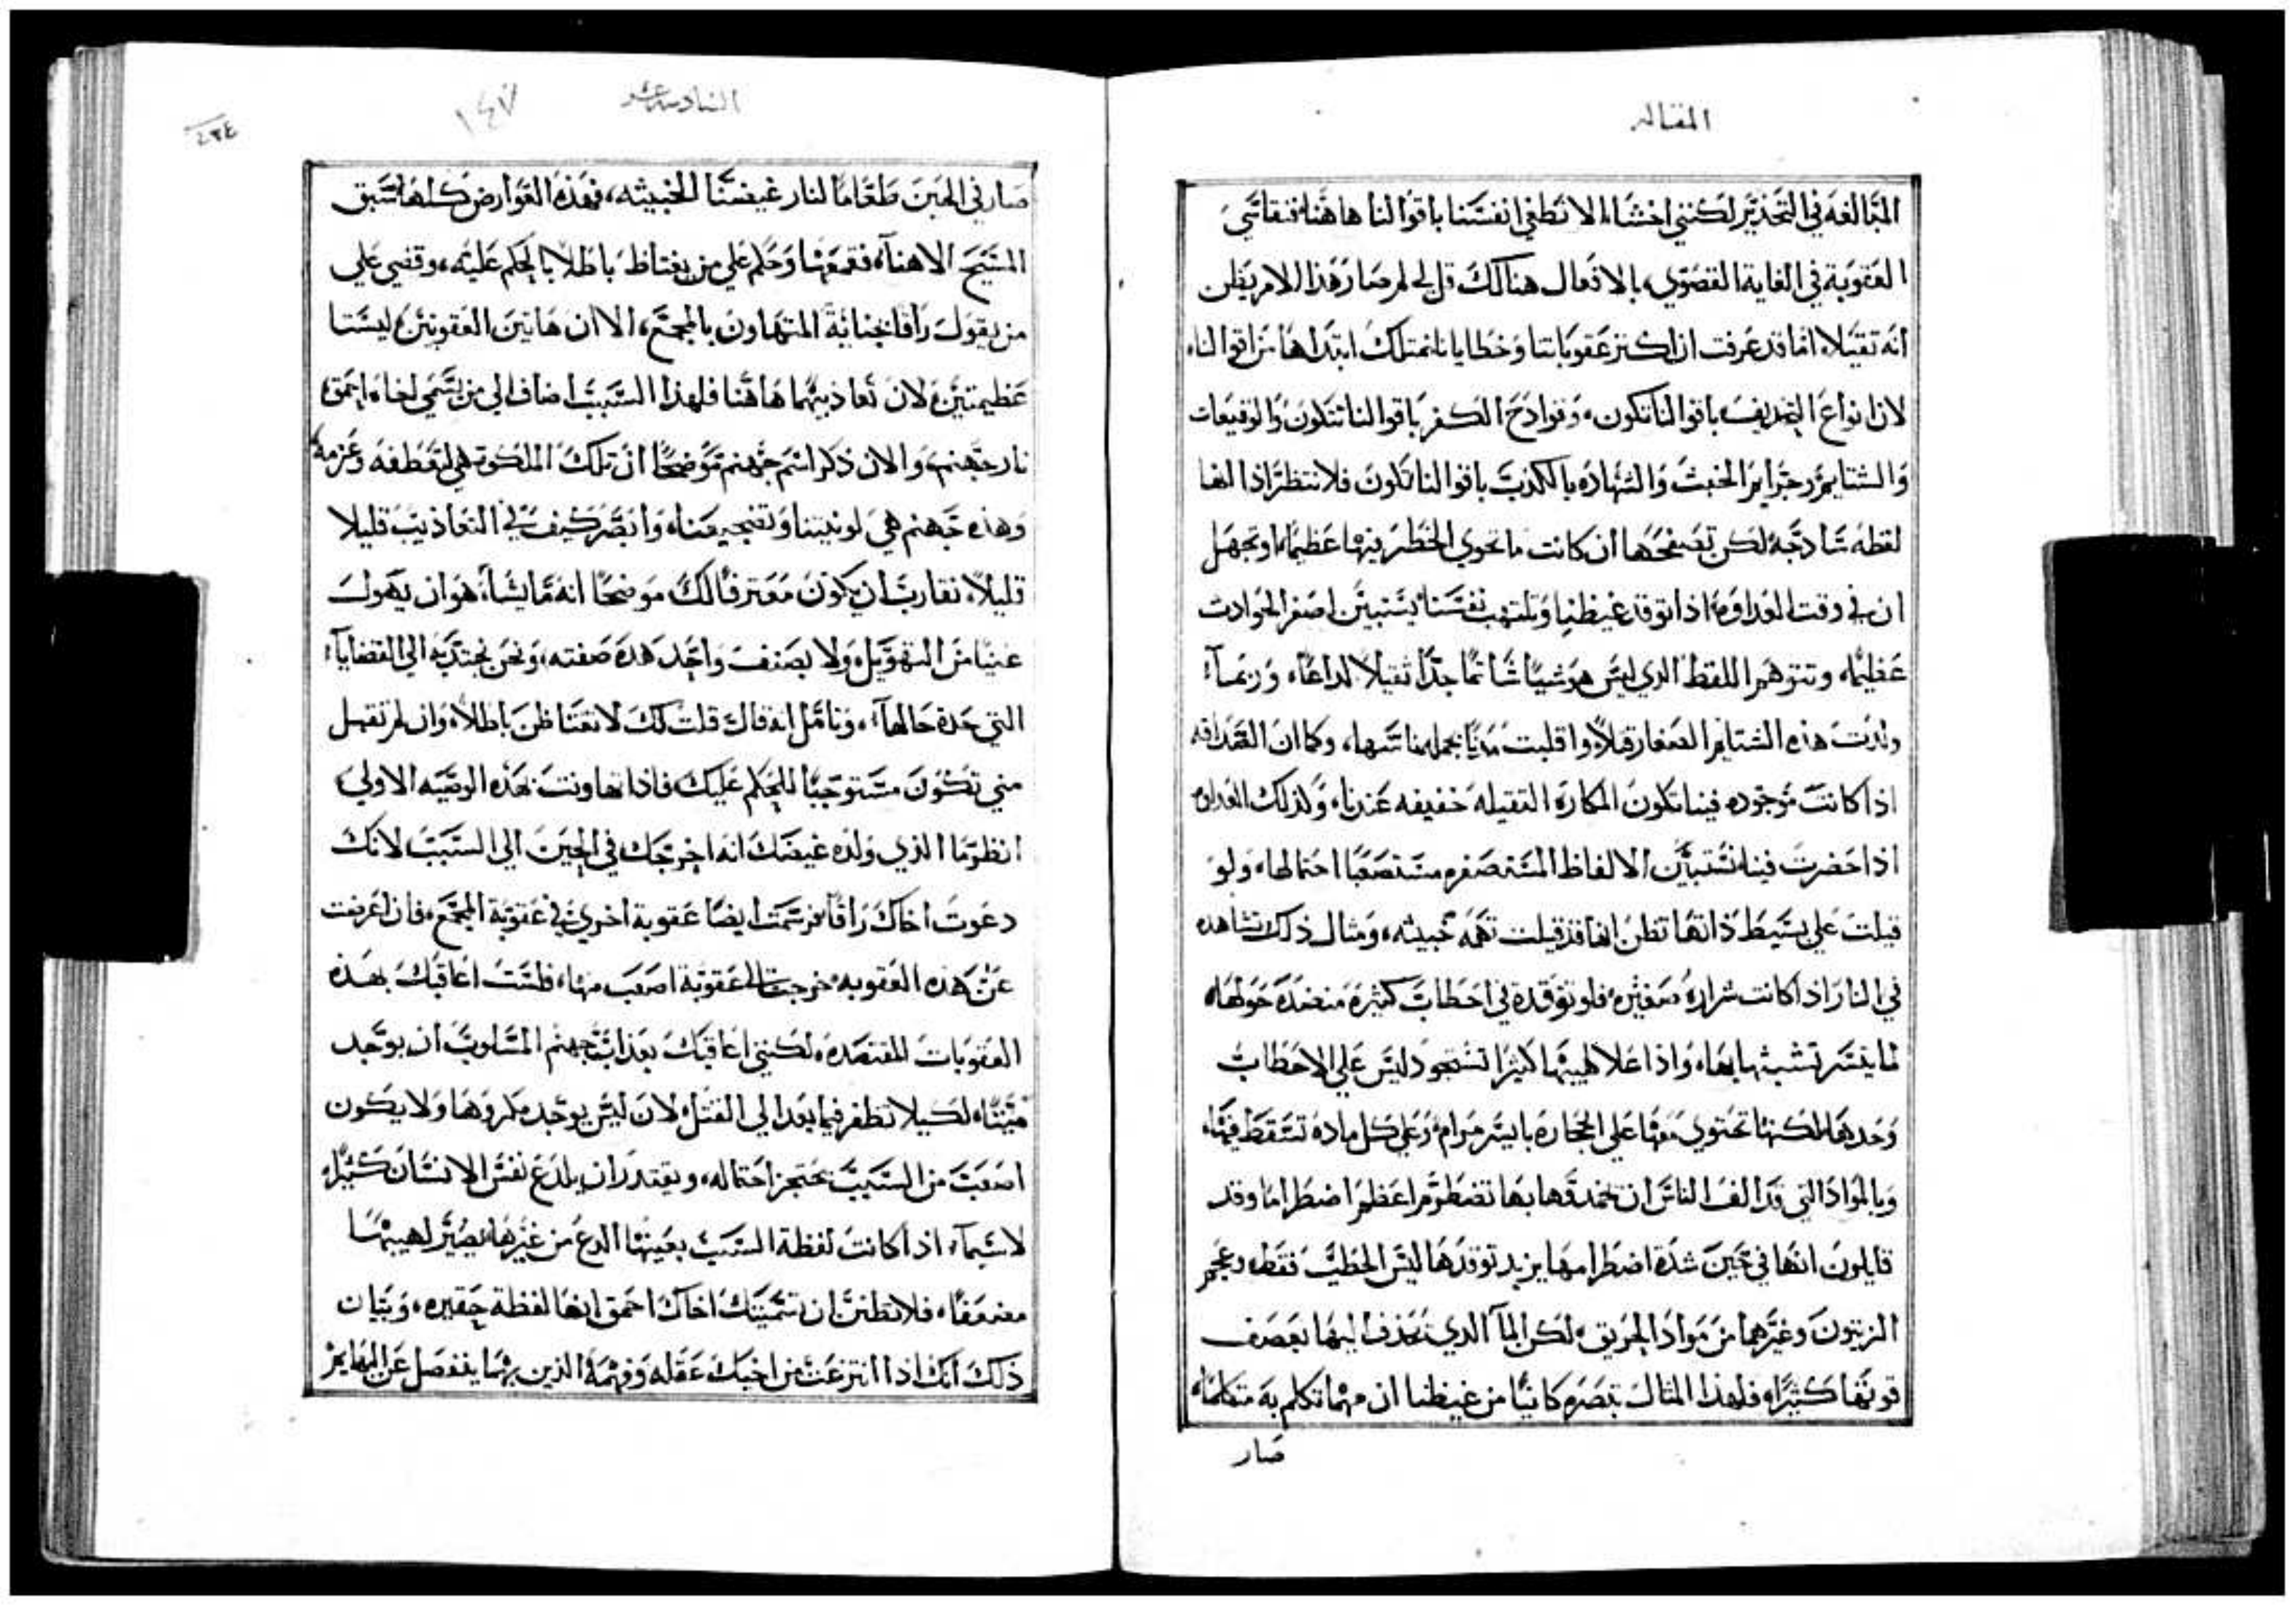 المقاله
المبالغه في التحذير لكنني اخشا الا نطغي انفسنا باقوالنا هاهنا فنقاسي
العقوبة في الغاية القصوي بالافعال هنالك قل لي لم صار هذا الامر يظن
انه ثقيلا اما قد عرفت ان اكثر عقوباتنا وخطايانا تمتلك ابتداها من اقوالنا
لان انواع التجديف باقوالنا تكون، وقوادح الكفر باقوالنا تتكون والوقيعات
والشتايم وجرايم الخبث والشهاده بالكذب باقوالنا تكون فلا تنتظر اذا انها
لفظه سادجه لكن تصفحها ان كانت ما تحوي الخطر فيها عظيما او تجهل
ان في وقت العداوه اذا توقد غيظنا وتلتهب نفسنا يستبين اصغر الحوادث
عظيما، وتتوهم اللفظ الدي ليس هو شيا شاتما جدا ثقيلا لداعا، وربما
ولدت هذه الشتايم الصغار قتلا واقلبت مدنا بجملها باسها، وكما ان الصداقه
اذا كانت موجوده فينا تكون المكاره الثقيله خفيفه عندنا، وكذلك العداوه
اذا حضرت فينا تستبين الالفاظ المستصغره مستصعبا احتمالها، ولو
قيلت علي بسيط ذاتها تظن انها قد قيلت تهمه خبيثه، ومثال ذلك نشاهده
في النار اذا كانت شراره صغيره فلو توقدة في احطاب كثيرة منضدة حولها
لما يتسر تشبثها بها، واذا علا لهيبها كثيرا تستحود ليس علي الاحطاب
وحدها لكنها تحتوي معها علي الحجاره بايسر مرام وعلي كل ماده تسقط فيها
وبالمواد التي قد الف الناس ان تخمد قوها بها تضطرم اعظم اضطراما وقد
قايلون انها في حين شدة اضطرامها يزيد توقدها ليس الحطب فقط، وعجم
الزيتون وغيرهما من مواد الحريق، لكن المآ الدي تحذف اليها يعصف
قوتها كثيرا، فلهذا المثال تبصره كاينا من غيظنا ان مهما تكلم به متكلما
صار
السادسه عشر
١٤٧
٤٢٤
صار في الحين طعاما لنار غيضنا الخبيثه، فهذه العوارض كلها سبق
المسيح الاهنا فقمعها وحكم علي من يغتاظ باطلا بالحكم عليه، وقضي علي
من يقول راقا بجناية المتهاون بالمجمع، الا ان هاتين العقوبتين ليستا
عظيمتين، لان تعاذيبهما هاهنا فلهذا السبب اضاف الي من يسمي اخاه احمق
نار جهنم، والان ذكر اسم جهنم موضحا ان تلك الملكوت هي لتعطفه وعزمه
وهذه جهنم هي لونيتنا وتفجيرعنا، وابصر كيف في التعاذيب قليلا
قليلا، نقارب ان يكون معترفا لك موضحا انه ما يشا هو ان يهول
عنينا من التهويل، ولا يصنف واحد هده صفته، ونحن نجتدبه الي القضايا
التي هذه حالها، وتامل انه قال قلت لك لا تغتاظن باطلا، وان لم تقبل
مني تكون مستوجبا للحكم عليك فاذا تهاونت بهذه الوصيه الاولي
انظر ما الذي ولده غيضك انه اخرجك في الحين الي السبب لانك
دعوت اخاك راقا فرسمت ايضا عقوبة اخري في عقوبة المجمع، فان اعرضت
عن هذه العقوبه خرجت الي عقوبة اصعب منها، فلست اعاقبك بهذه
العقوبات المقتصده، لكنني اعاقبك بعذاب جهنم المسلوب ان يوجد
ميتتا، لكيلا تطفر فيما بعد الي القتل، لان ليس يوجد مكروها ولا يكون
اصعب من السبب يحتجز احتماله، ويقتدر ان يلدغ نفس الانسان كثيرا
لاسيما اذا كانت لفظة السبب بعينها الدع من غيرها يصير لهيبها
مضعفا، فلا تظنن ان تسميتك اخاك احمق انها لفظة حقيره، وبيان
ذلك انك اذا انتزعت من اخيك عقله وفهمه الذين بهما ينفصل عن البهايم